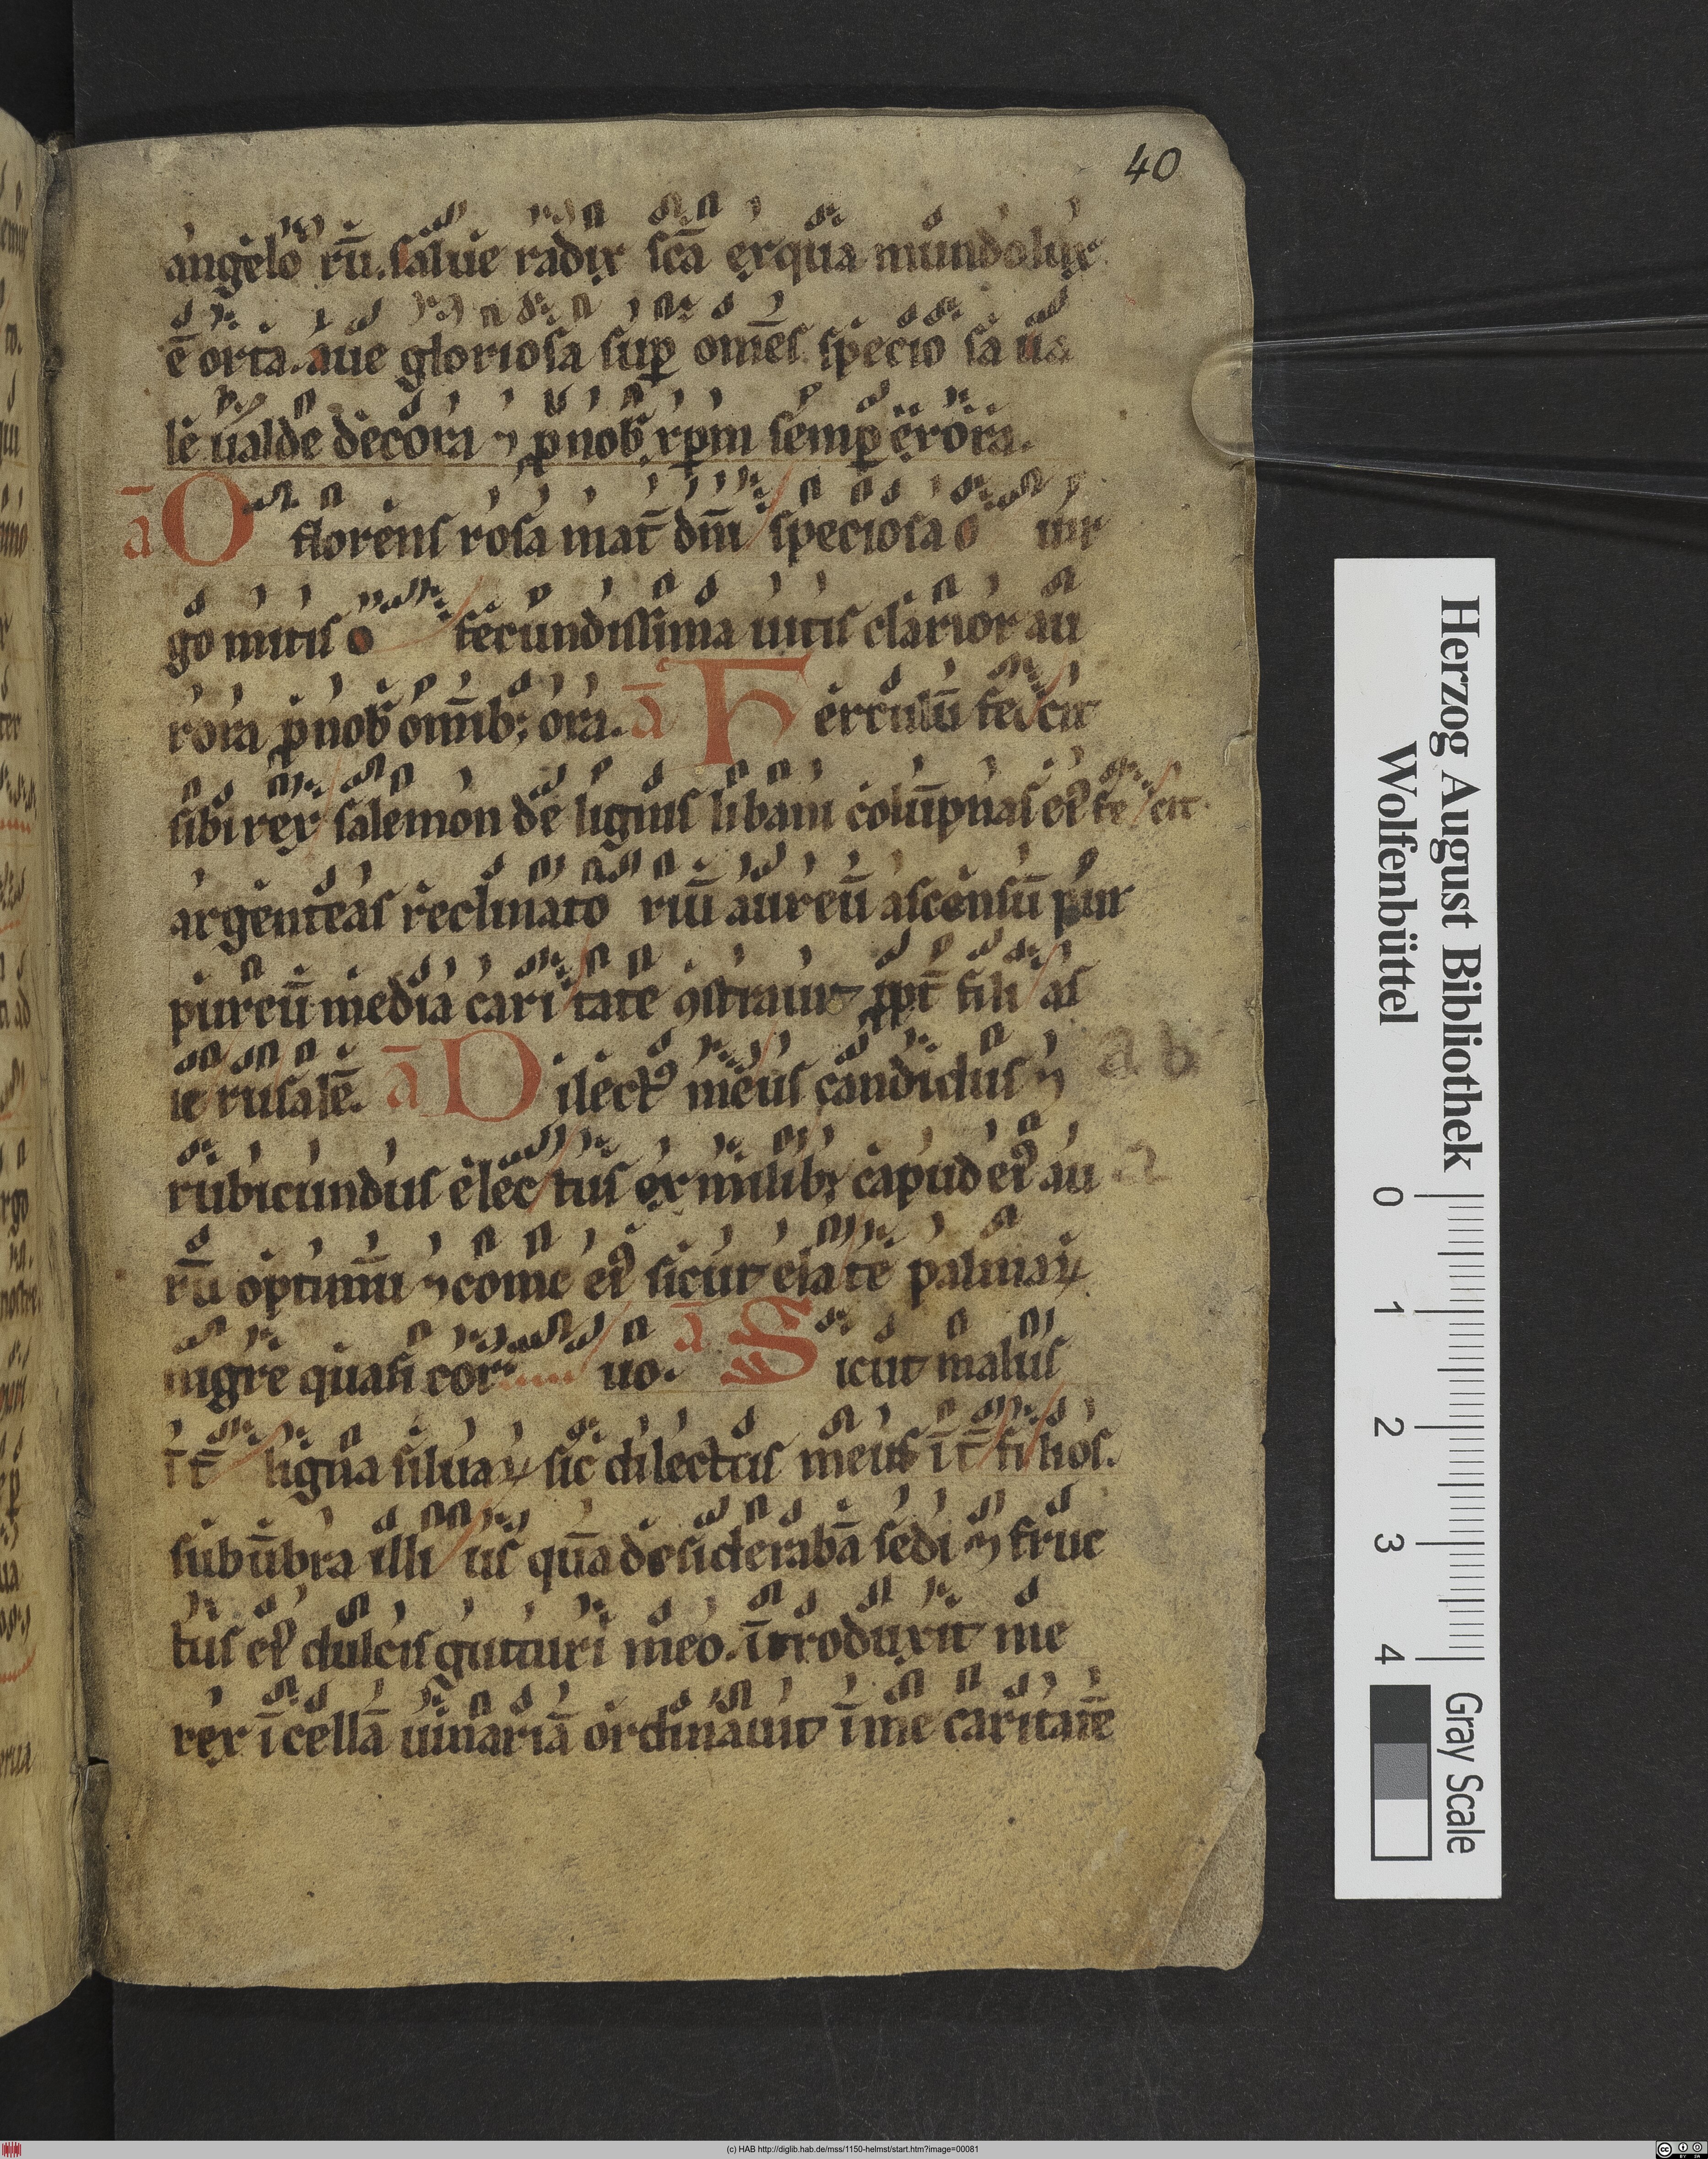 40
angelo rū. salue radix scā ex qua mundo lux
ē orta. aue gloriosa suꝑ om̄es speciosa ua
le ualde decora ⁊ ꝓ nob̄ xp̄m semꝑ exora.
ā O florens rosa mat̄ dn̄i speciosa o uir
go mitis o fecundissima uitis clarior au
rora ꝓ nob̄ om̄ibꝫ ora. ā Ferculū fecit
sibi rex salemon de lignis libani colūpnas eiꝰ fecit
argenteas reclinatoriū aureū ascensū pur
pureū media caritate ꝯstrauit ꝓpt̄ filias
ierusalē. ā Dilectꝰ meus candidus ⁊ a b
rubicundus electus ex milibꝫ capud eiꝰ au a
rū optimū ⁊ come eiꝰ sicut elate palmaꝝ
nigre quasi coruo. ā Sicut malus
īt̄ ligna siluaꝝ sic dilectus meus īt̄ filios.
sub ūbra illius quā desiderabā sedi ⁊ fruc
tus eiꝰ dulcis gutturi meo. introduxit me
rex ī cellā uinariā ordinauit ī me caritatē
Herzog August Bibliothek
Wolfenbüttel
0 1 2 3 4
Gray Scale
(c) HAB http://diglib.hab.de/mss/1150-helmst/start.htm?image=00081